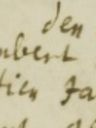 den
mbert
tien Ja